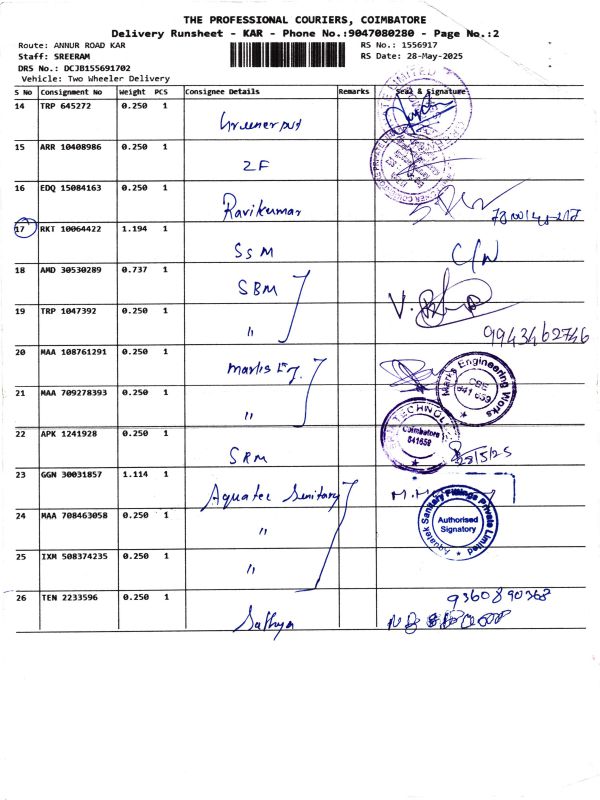 THE PROFESSIONAL COURIERS, COIMBATORE
Delivery Runsheet - KAR - Phone No.:9047080280 - Page No.:2
Route: ANNUR ROAD KAR RS No.: 1556917
Staff: SREERAM RS Date: 28-May-2025
DRS No.: DCJB155691702
Vehicle: Two Wheeler Delivery
S No Consignment No Weight PCS Consignee Details Remarks Seal & Signature
14 TRP 645272 0.250 1
15 ARR 10408986 0.250 1 2F
16 EDQ 15084163 0.250 1 Ravikumar
17 RKT 10064422 1.194 1 SSM C/N
18 AMD 30530289 0.737 1 SBM
19 TRP 1047392 0.250 1 "
9943462746
20 MAA 108761291 0.250 1 Marks Eg.
Marks Engineering Works
CBE
641 659
21 MAA 709278393 0.250 1 "
22 APK 1241928 0.250 1 SRM
Coimbatore
641659
28/5/25
23 GGN 30031857 1.114 1 Aquatec Sanitary
Aquatek Sanitary Fittings Private Limited
Authorised
Signatory
24 MAA 708463058 0.250 1 "
25 IXM 508374235 0.250 1 "
26 TEN 2233596 0.250 1 Sathya
9360890368